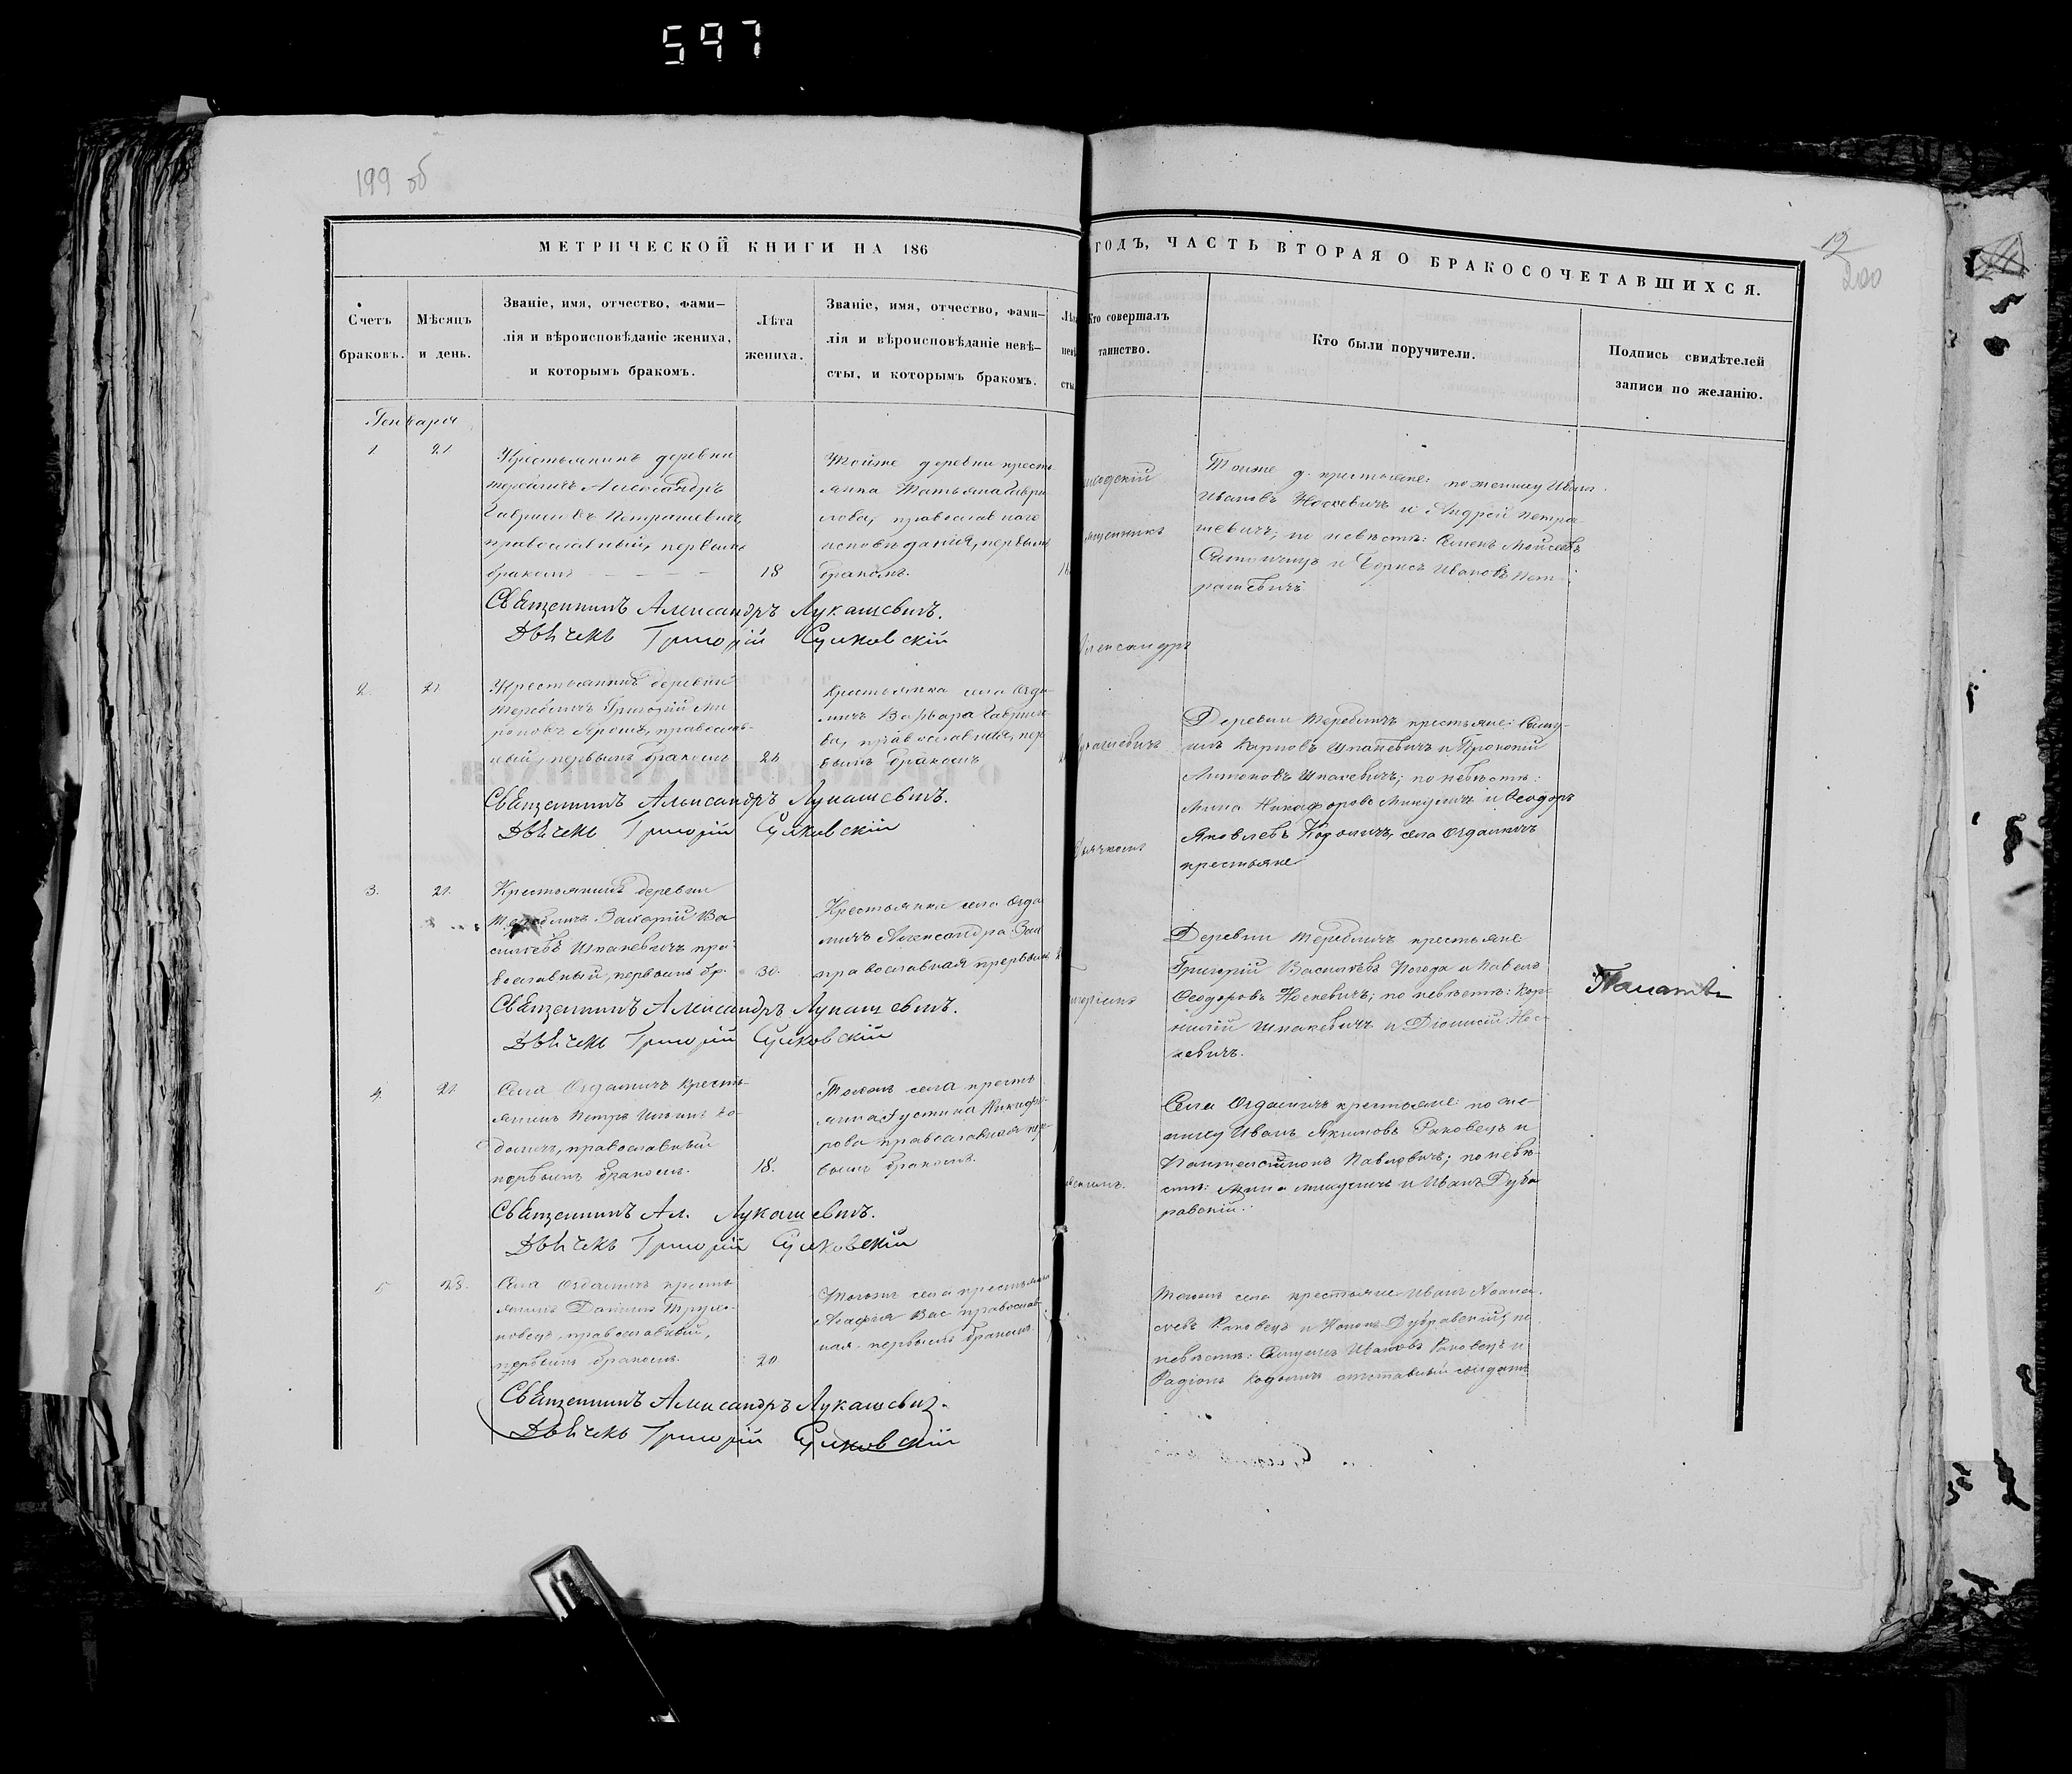 597
199 об
19
200
МЕТРИЧЕСКОЙ КНИГИ НА 186
ГОДЪ, ЧАСТЬ ВТОРАЯ О БРАКОСОЧЕТАВШИХСЯ.
Счетъ браковъ.
Мѣсяцъ и день.
Званіе, имя, отчество, фами-
лія и вѣроисповѣданіе жениха,
и которымъ бракомъ.
Лѣта
жениха.
Званіе, имя, отчество, фами-
лія и вѣроисповѣданіе невѣ-
сты, и которымъ бракомъ.
Кто совершалъ
таинство.
Кто были поручители.
Подпись свидѣтелей
записи по желанію.
Генваря
1
21
Крестьянинъ деревни
Теребличъ Александръ
Гавриловъ Петрашевичъ,
православный, первымъ
бракомъ
18
Тойже деревни кресть
янка Татьяна Гаври
лова, православнаго
исповѣданія, первымъ
бракомъ.
Тойже д. крестьяне: по жениху Иванъ
Ивановъ Носкевичъ и Андрей Петра-
шевичъ; по невѣстѣ: Семенъ Мойсеевъ
и Борисъ Ивановъ Пет-
рашевичъ
Священникъ Александръ Лукашевичъ.
Дьячекъ Григорій Сулковскій
Александръ
2.
21.
Крестьянинъ деревни
Теребличъ Григорій Ми
роновъ Ярошъ, православ-
ный, первымъ бракомъ
Крестьянка села Озда-
мичъ Варвара Гаврило-
ва, православная, пер
вымъ бракомъ
Деревни Теребличъ крестьяне: Саму-
илъ Карповъ Шпакевичъ и Прокопій
Антоновъ Шпакевичъ; по невѣстѣ:
Мина Никифоровъ Микуличъ и Ѳеодоръ
Яковлевъ села Оздамичъ
крестьяне
Священникъ Александръ Лукашевичъ.
Дьячекъ Григорій Сулковскій
Дьячкомъ
3.
21.
Крестьянинъ деревни
Теребличъ Захарій Ва
сильевъ Шпакевичъ пра-
вославный, первымъ бр.
30.
Крестьянка села Озда
мичъ Александра
православная первымъ
Деревни Теребличъ крестьяне
Григорій Васильевъ Погода и Павелъ
Ѳеодоровъ Носкевичъ; по невѣстѣ: Кор-
нилій Шпакевичъ и Діонисій Нос-
кевичъ.
Священникъ Александръ Лукашевичъ.
Дьячекъ Григорій Сулковскій
4.
21
Села Оздамичъ кресть-
янинъ Петръ Ильинъ Ко-
доличъ, православный
первымъ бракомъ.
18.
Тогожъ села кресть
янка Густина Никифо-
рова православная пер-
вымъ бракомъ.
Села Оздамичъ крестьяне: по же-
ниху Иванъ Якимовъ Раковецъ и
Пантелеймонъ Павловичъ; по невѣ-
стѣ: Мина Микуличъ и Иванъ Дуб
равскій.
Священникъ Ал. Лукашевичъ.
Дьячекъ Григорій Сулковскій
5
28.
Села Оздамичъ кресть
янинъ Даніилъ
православный,
первымъ бракомъ.
20
Тогожъ села крестьянка
Агафія Вас православ-
ная первымъ бракомъ.
Тогожъ села крестьяне Иванъ
Раковецъ и Дубравскій, по
невѣстѣ: Самуилъ Ивановъ Раковецъ и
Радіонъ Кодоличъ отставный солдатъ
Священникъ Александръ Лукашевичъ.
Дьячекъ Григорій Сулковскій